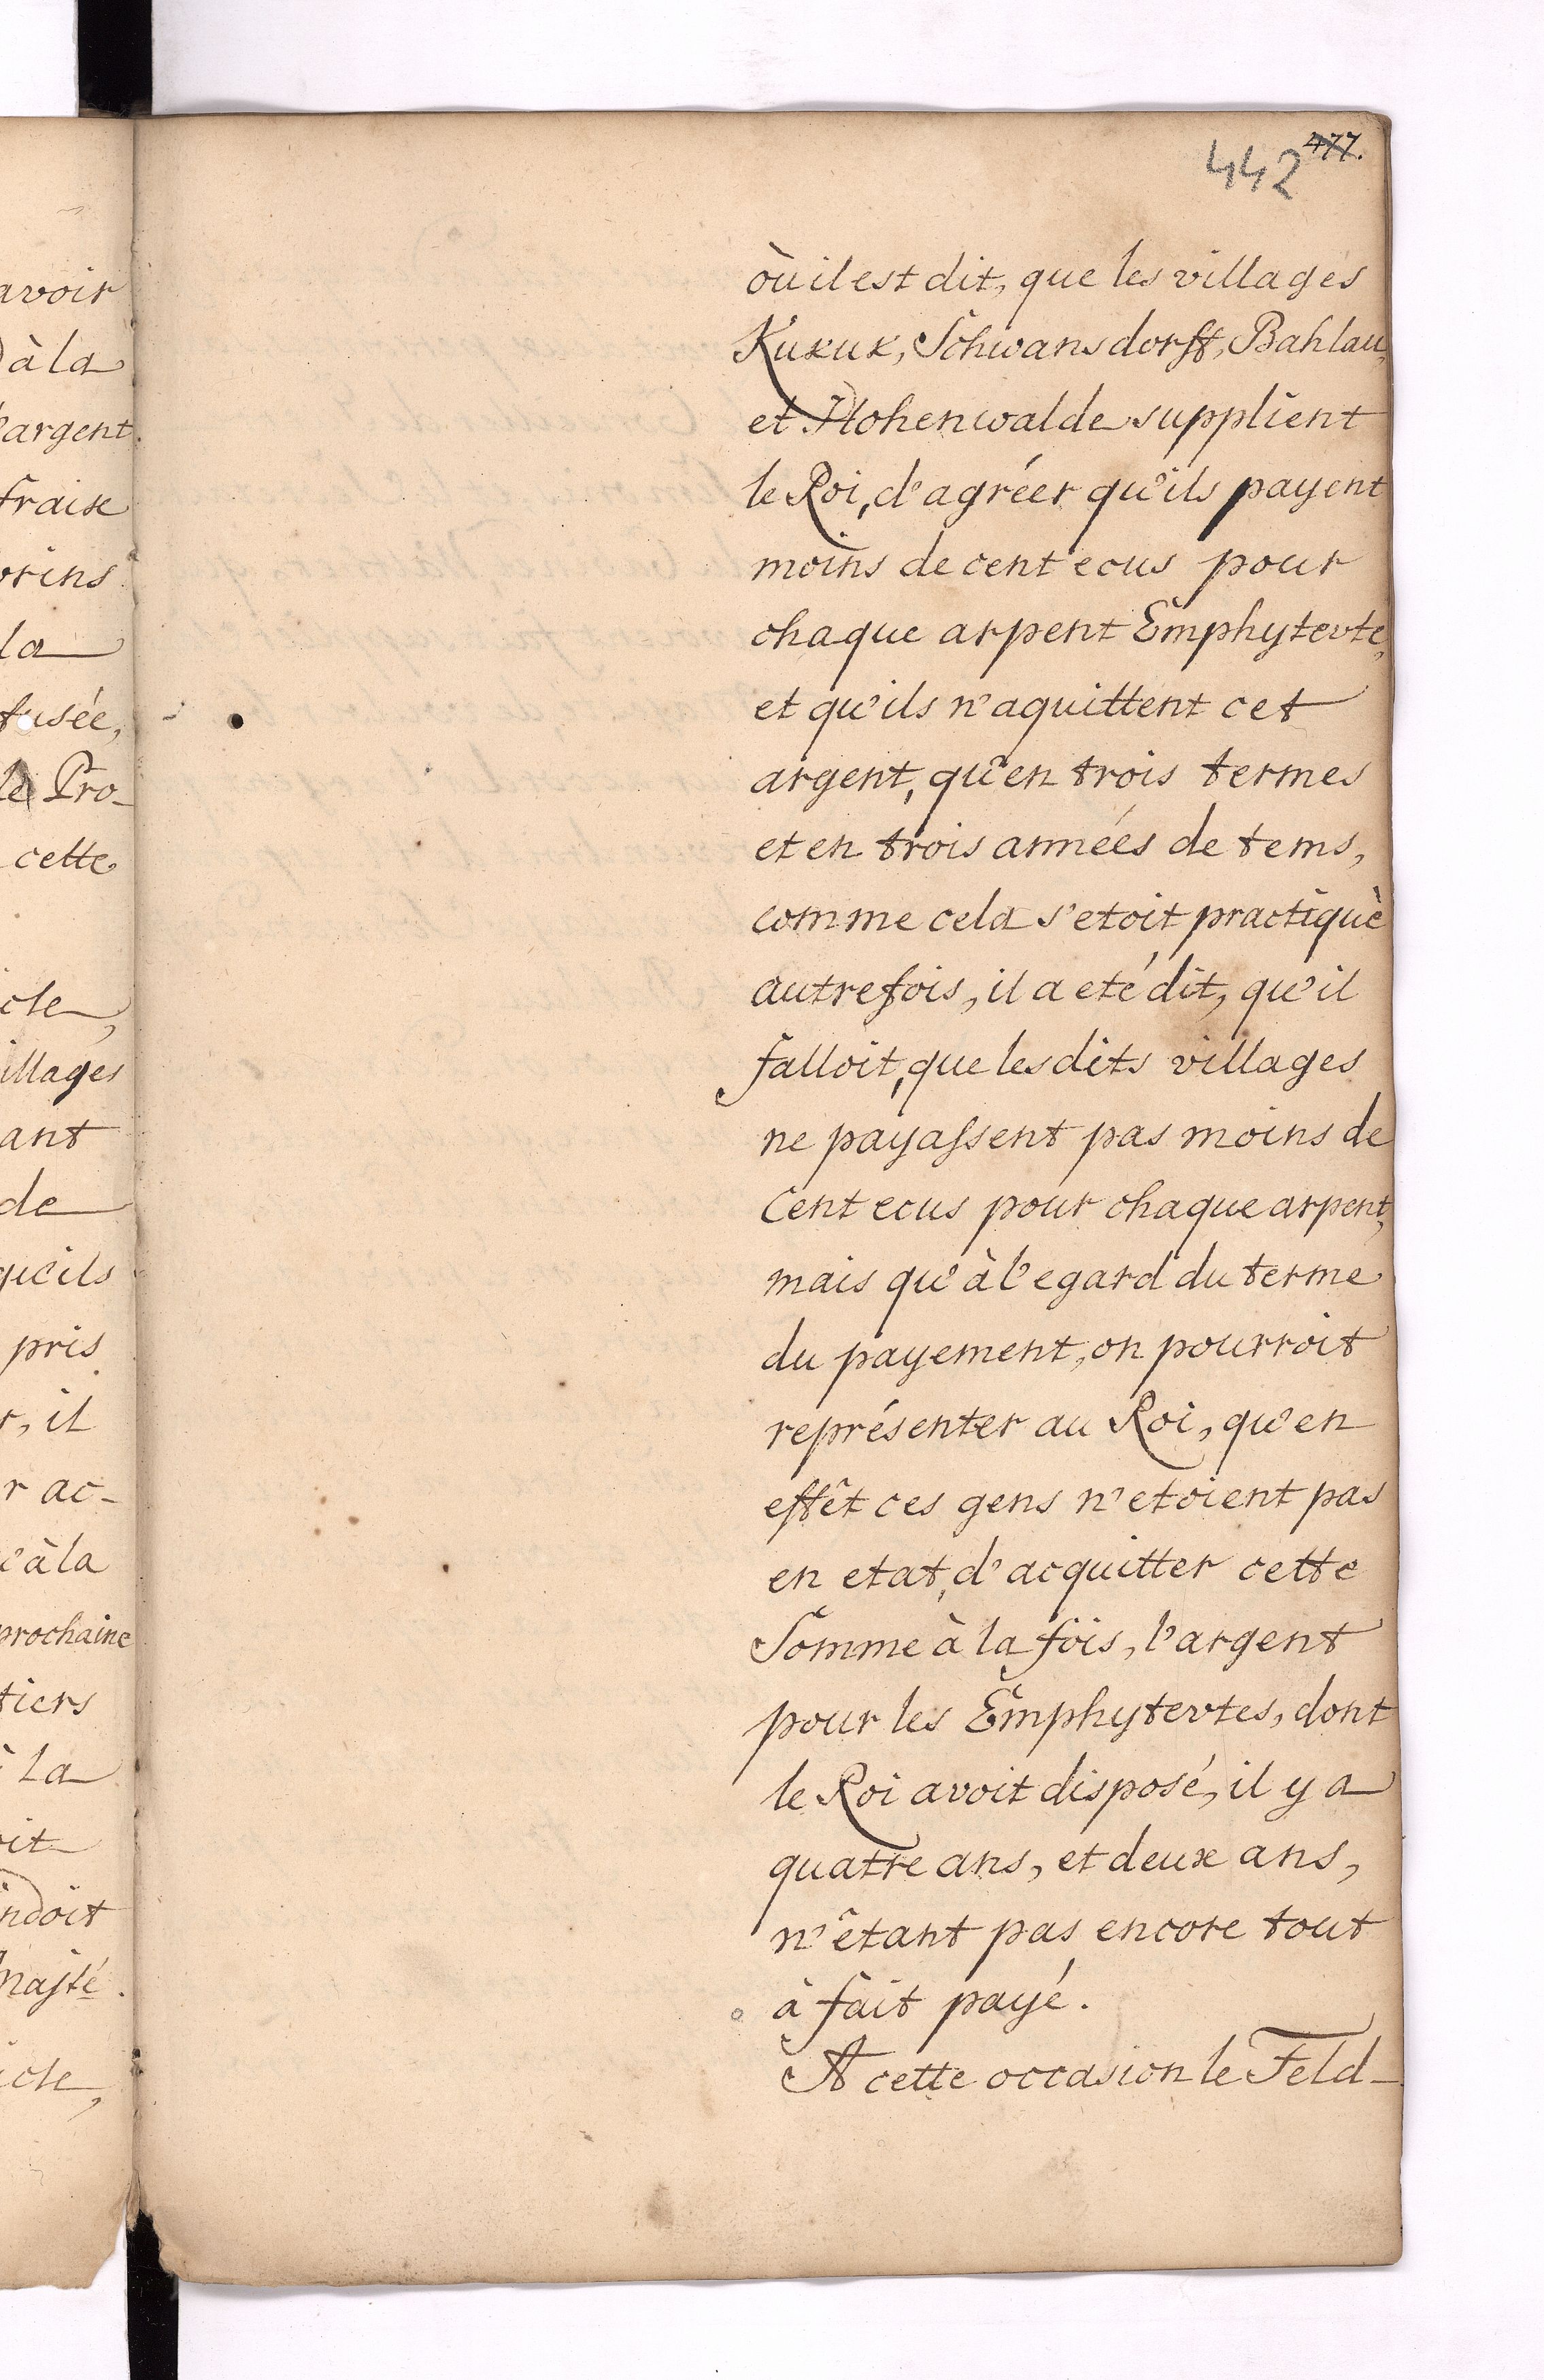 477.
442
où il est dit, que les villages
Kukuk, Schwansdorff, Bahlau,
et Hohenwalde supplient
le Roi, d'agréer qu'ils payent
moins de cent ecus pour
chaque arpent Emphytevte,
et qu'ils n'aquittent cet
argent, qu'en trois termes
et en trois années de tems,
comme cela s'etoit practiquè
autrefois, il a eté dit, qu'il
falloit, que les dits villages
ne payassent pas moins de
Cent ecus pour chaque arpent,
mais qu'à l'egard du terme
du payement, on pourroit
représenter au Roi, qu'en
effêt ces gens n'etoient pas
en etat, d'acquitter cette
Somme à la fois, l'argent
pour les Emphytevtes, dont
le Roi avoit disposé, il y a
quatre ans, et deux ans,
n'êtant pas encore tout
à fait payé.
A cette occasion le Feld-
avoir
à la
argent.
fraix
la
fusée,
le Pro-
cette
illages
ant
de
qu'ils
pris
r, il
r ac-
à la
prochaine
tiers
à La
oit